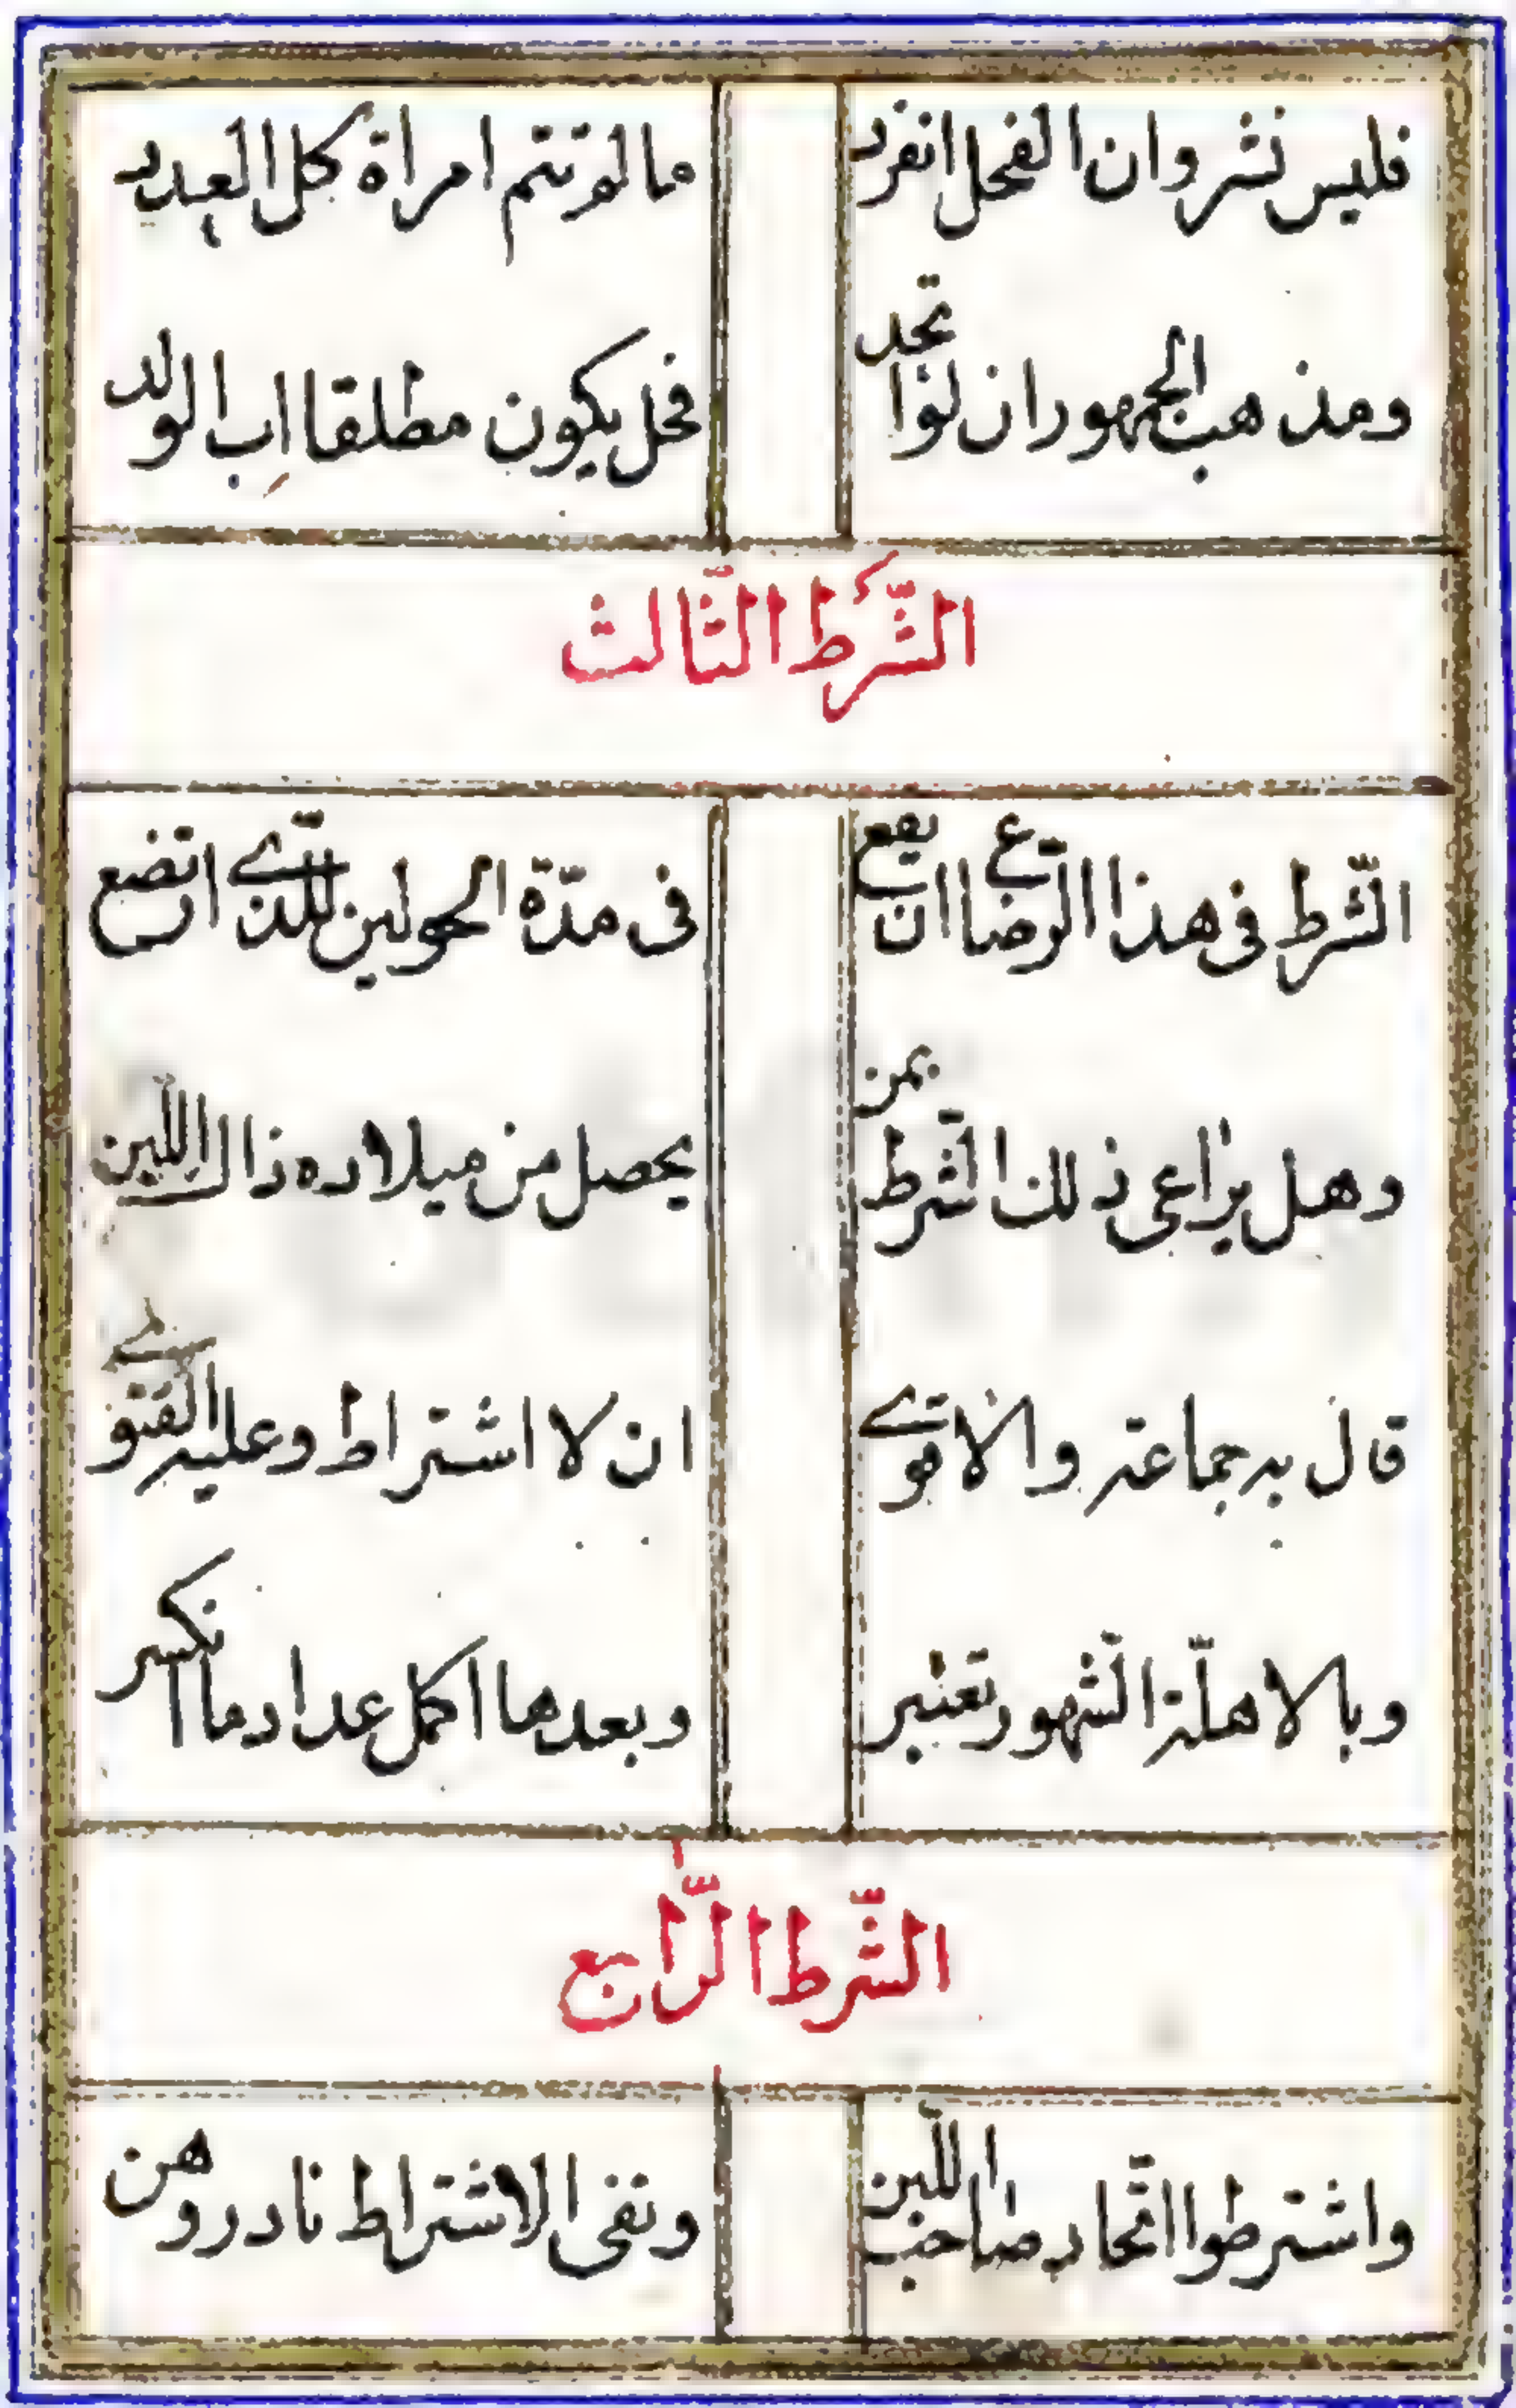 فليس نشر وان الفحل انفرد
ما لم تتم امراة كل العدد
ومذهب الجمهور ان لو اتحد
فحل يكون مطلقا اب الولد
الشّرط الثّالث
الشّرط فى هذا الرّضاع ان يقع
فى مدّة الحولين للّذے ارتضع
وهل يراعى ذلك الشّرط بمن
يحصل من ميلاده ذاك اللّبن
قال به جماعة والاقوے
ان لا اشتراط وعليه الفتوے
وبالاهلّة الشّهور تعتبر
وبعدها اكمل عدادما انكسر
الشّرط الرّابع
واشترطوا اتّحاد صاحب اللّبن
ونفى الاشتراط نادر وهن